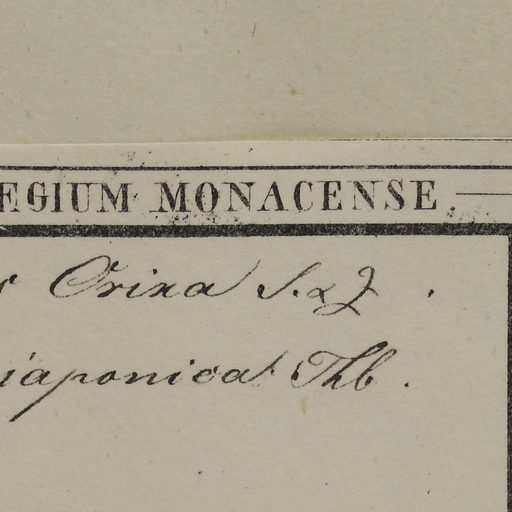 EGIUM MONACENSE.
Orixa S. & Z.
iaponica Thb.